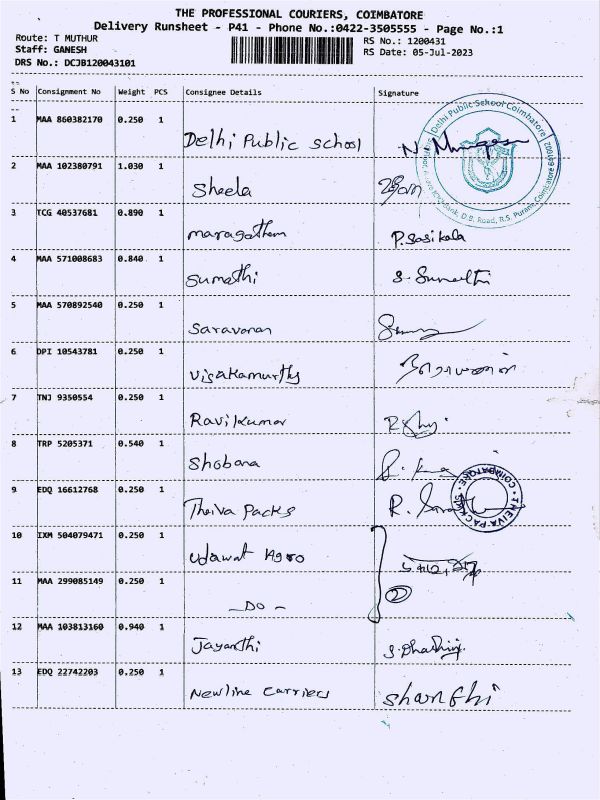 THE PROFESSIONAL COURIERS, COIMBATORE
Delivery Runsheet - P41 - Phone No.:0422-3505555 - Page No.:1
Route: T MUTHUR
RS No.: 1200431
Staff: GANESH
RS Date: 05-Jul-2023
DRS No.: DCJB120043101
S No Consignment No Weight PCS Consignee Details Signature
1 MAA 860382170 0.250 1
Delhi Public School
Delhi Public School Coimbatore
D.B. Road, R.S. Puram, Coimbatore
2 MAA 102380791 1.030 1
Sheela
3 TCG 40537681 0.890 1
maragatham P. Sasikala
4 MAA 571008683 0.840 1
Sumathi S. Sumathi
5 MAA 570892540 0.250 1
Saravanan
6 DPI 10543781 0.250 1
Visakamurthy
7 TNJ 9350554 0.250 1
Ravikumar
8 TRP 5205371 0.540 1
Shobana
9 EDQ 16612768 0.250 1
Theiva Packs R.
THEIVA PACKS COIMBATORE
10 IXM 504079471 0.250 1
Udawat Agro
11 MAA 299085149 0.250 1
- DO - 2
12 MAA 103813160 0.940 1
Jayanthi
13 EDQ 22742203 0.250 1
Newline Carriers Shanthi